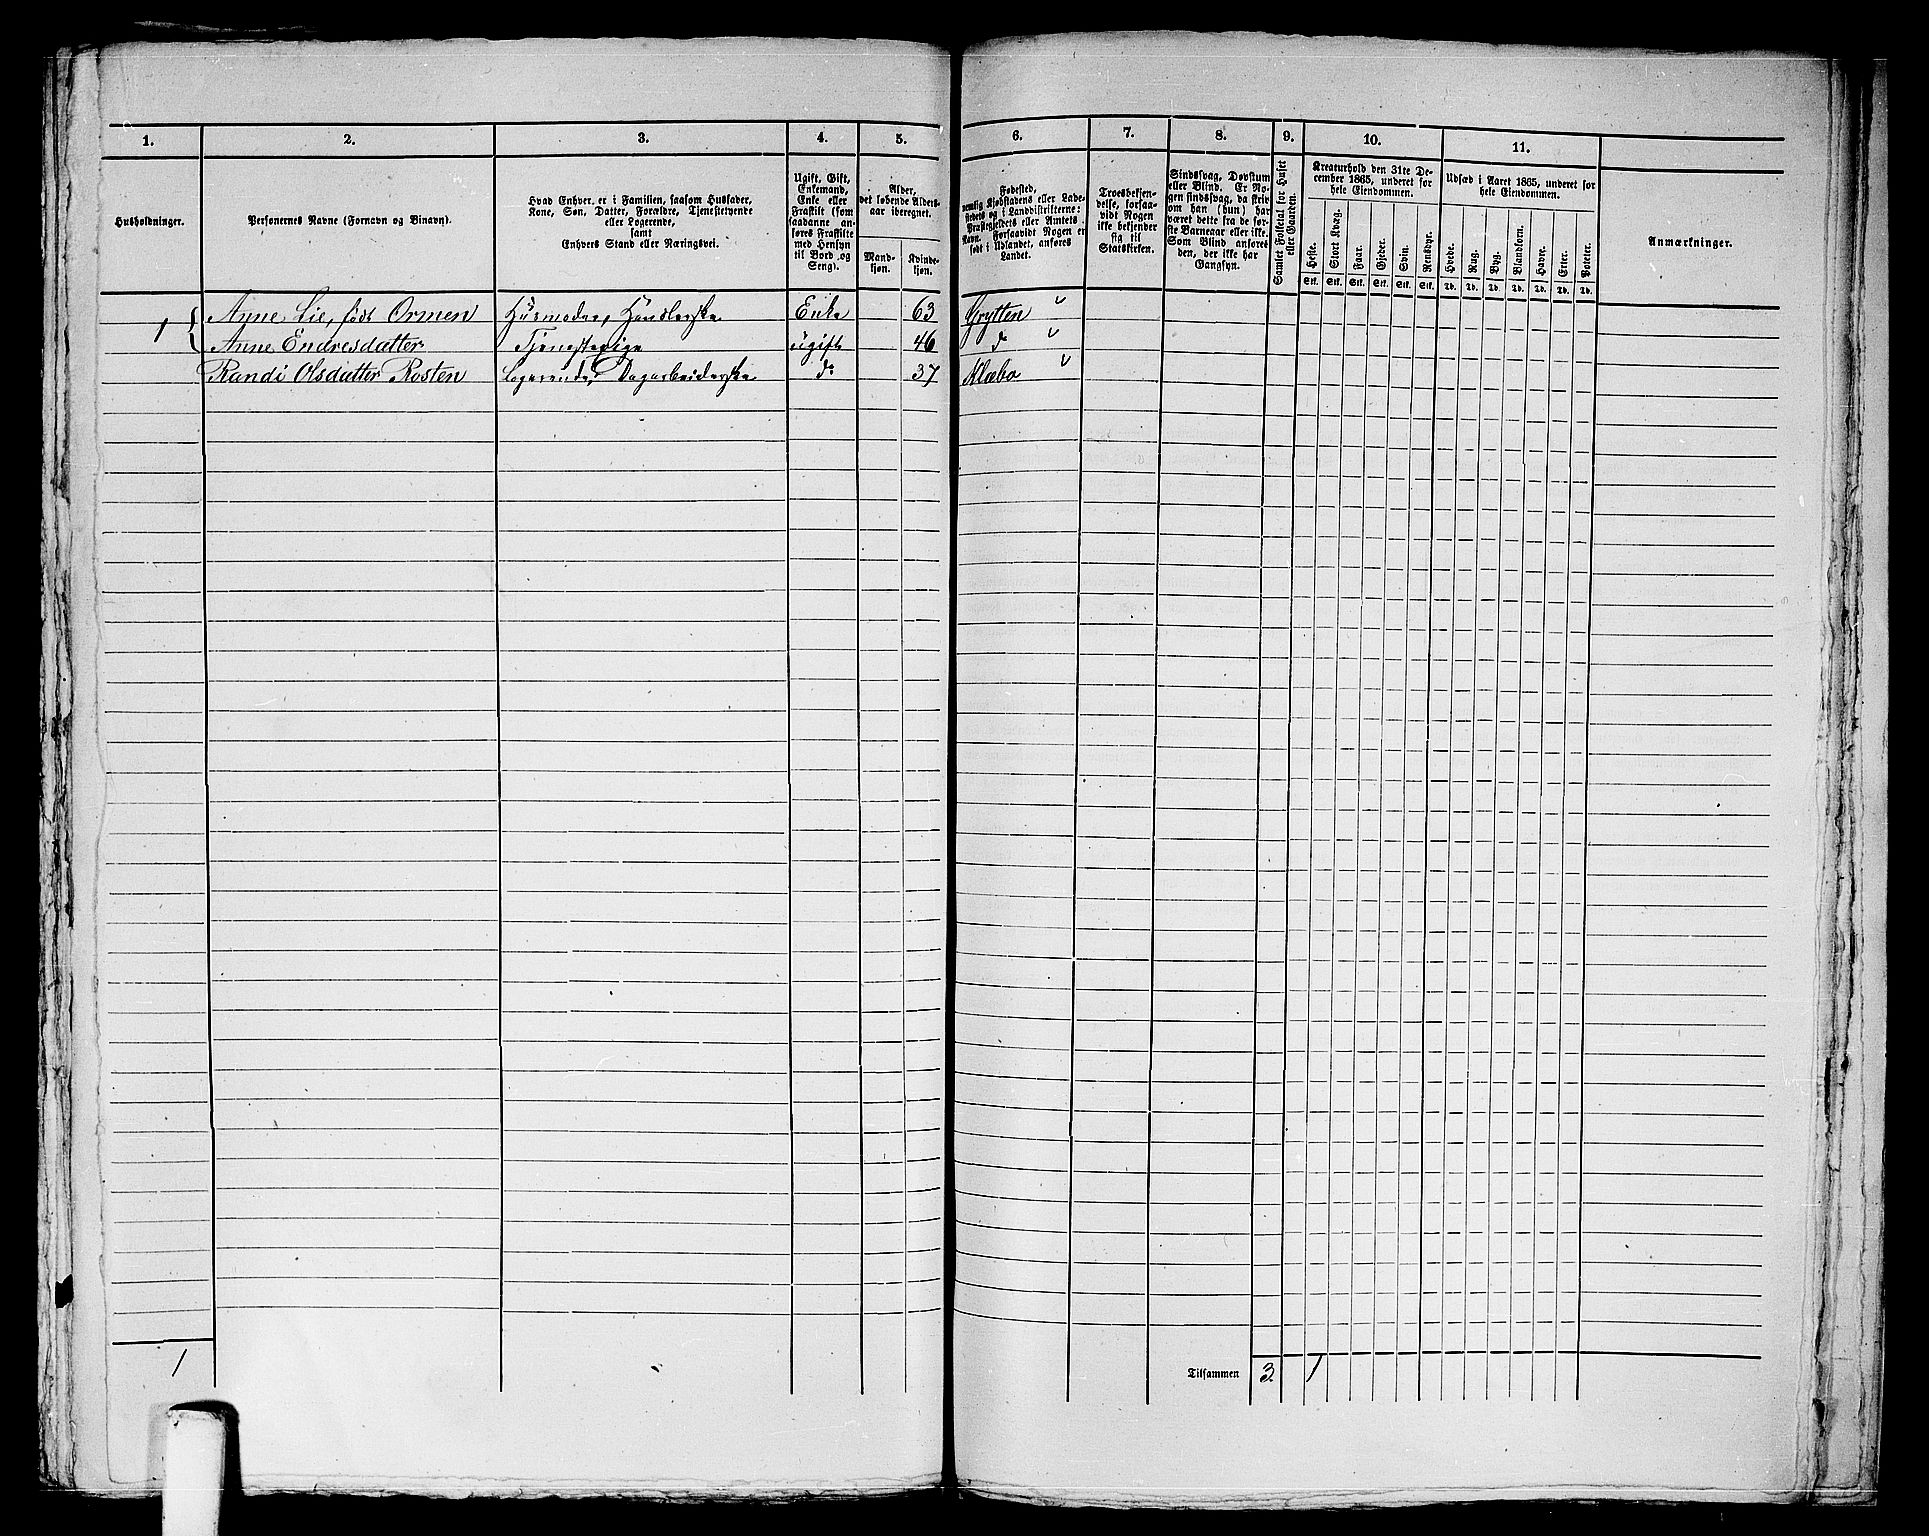 1. 2. 3. 4. 5. 6. 7. 8. 9. 10. 11.
Husholdninger.
Personernes Navne (Fornavn og Binavn).
Hvad Enhver er i Familien, saasom Husfader,
Kone, Søn, Datter, Forældre, Tjenstetyende
eller Logerende,
samt
Enhvers Stand eller Næringsvei.
Ugift, Gift,
Enkemand,
Enke eller
Fraskilt (som
saadanne an-
føres Fraskilte
med Hensyn
til Bord og
Seng).
Alder,
det løbende Alders-
aar iberegnet.
Mand-
kjøn.
Kvinde-
kjøn.
Fødested,
nemlig Kjøbstadens eller Lade-
stedets og i Landdistrikterne:
Præstegjeldets eller Amtets
Navn. Forsaavidt Nogen er
født i Udlandet, anføres
Landet.
Troesbekjen-
delse, forsaa-
vidt Nogen
ikke bekjender
sig til
Statskirken.
Sindssvag, Døvstum
eller Blind. Er No-
gen sindssvag, da skriv
om han (hun) har
været dette fra de før-
ste Barneaar eller ikke.
Som Blind anføres
den, der ikke har
Gangsyn.
Samlet Folketal for Huset
eller Gaarden.
Kreaturhold den 31te De-
cember 1865, underet for
hele Eiendommen.
Heste. Stort Kvæg. Faar. Gjeder. Svin. Rensdyr.
Stk. Stk. Stk. Stk. Stk. Stk.
Udsæd i Aaret 1865, underet for
hele Eiendommen.
Hvede. Rug. Byg. Blandkorn. Havre. Erter. Poteter.
Td. Td. Td. Td. Td. Td. Td.
Anmærkninger.
1 { Anne Lie, født Ormen Husmoder, Handlerske Enke 63 Grytten
Anne Endresdatter Tjenestepige ugift 46 do
Randi Olsdatter Rosten Logerende, Dagarbeiderske do 37 Klæbo
1 Tilsammen 3. 1